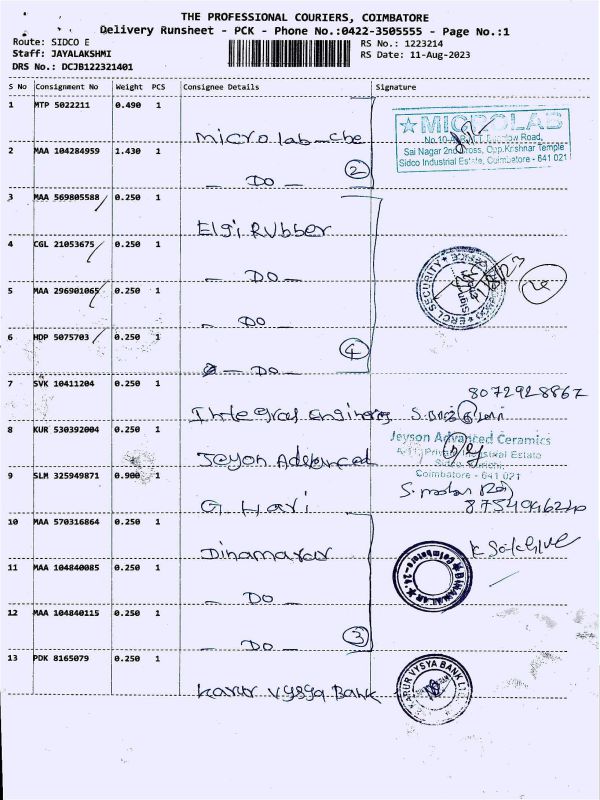 THE PROFESSIONAL COURIERS, COIMBATORE
Delivery Runsheet - PCK - Phone No.:0422-3505555 - Page No.:1
Route: SIDCO E
RS No.: 1223214
Staff: JAYALAKSHMI
RS Date: 11-Aug-2023
DRS No.: DCJB122321401
S No Consignment No Weight PCS Consignee Details Signature
1 MTP 5022211 0.490 1
Microlab-cbe
MICROLAB
Sai Nagar 2nd Cross, Opp.Krishnar Temple
Sidco Industrial Estate, Coimbatore - 641 021
2 MAA 104284959 1.430 1
- Do -
2
3 MAA 569805588 0.250 1
Elgi Rubber
4 CGL 21053675 0.250 1
- Do -
ERCL SECURITY
5 MAA 296901065 0.250 1
- Do
6 HDP 5075703 0.250 1
- Do -
4
7 SVK 10411204 0.250 1
8072928867
Integral Engineers
8 KUR 530392004 0.250 1
Jeyson Advanced Ceramics
Coimbatore - 641 021
Jeyon Advanced
9 SLM 325949871 0.900 1
G Hari
8754946240
10 MAA 570316864 0.250 1
Dinamalar
DINAMALAR
Coimbatore-24
11 MAA 104840085 0.250 1
- Do -
12 MAA 104840115 0.250 1
- Do -
3
13 PDK 8165079 0.250 1
Karur Vysya Bank
KARUR VYSYA BANK LTD